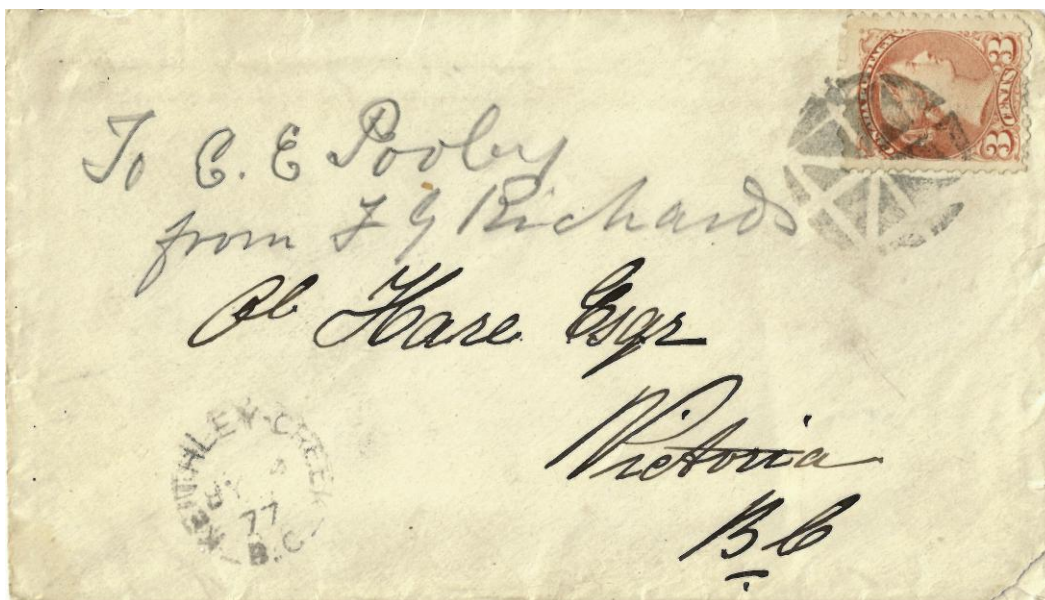 CANADA POSTAGE
3 CENTS 3
To C. E Pooley
from F G Richards
Hare Esqr
Victoria
B C
KEITHLEY-CREEK
77
B.C.